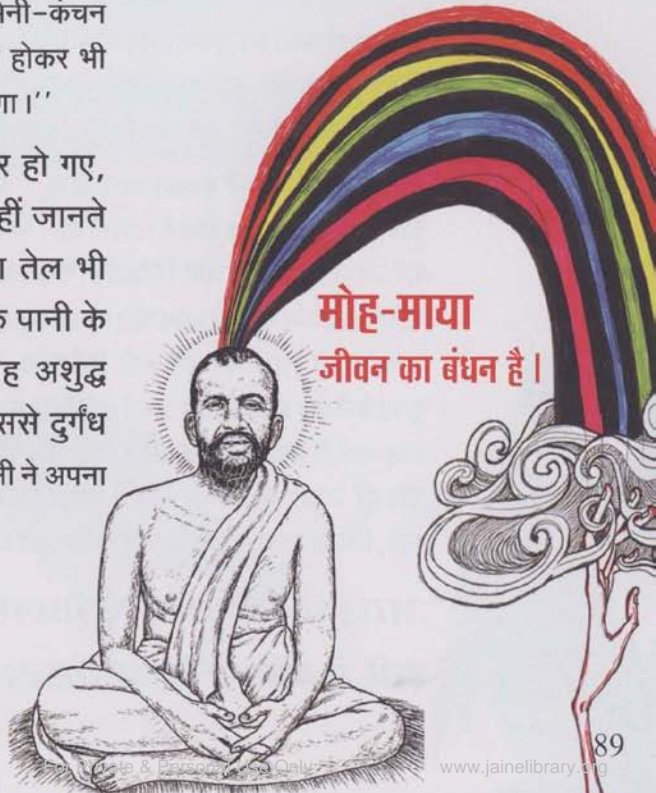 होकर भी
र हो गए,
हीं जानते
तेल भी
पानी के
अशुद्ध
ससे दुर्गंध
ने अपना
मोह-माया
जीवन का बंधन है।
For Private & Personal Use Only
www.jainelibrary.org
89